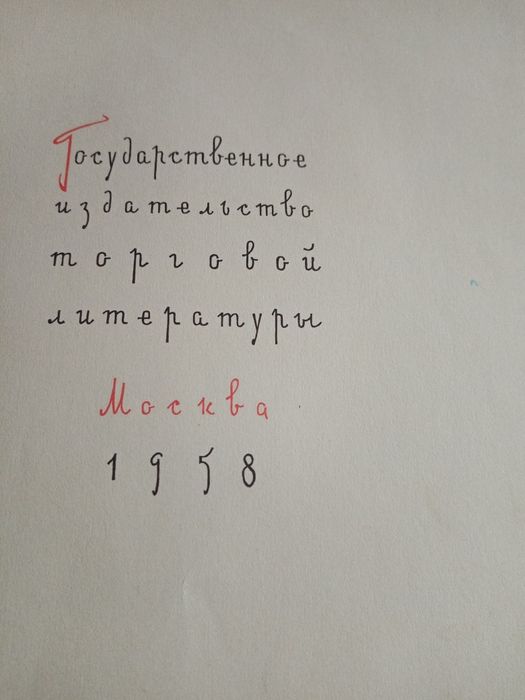 Государственное
издательство
торговой
литературы
Москва
1958